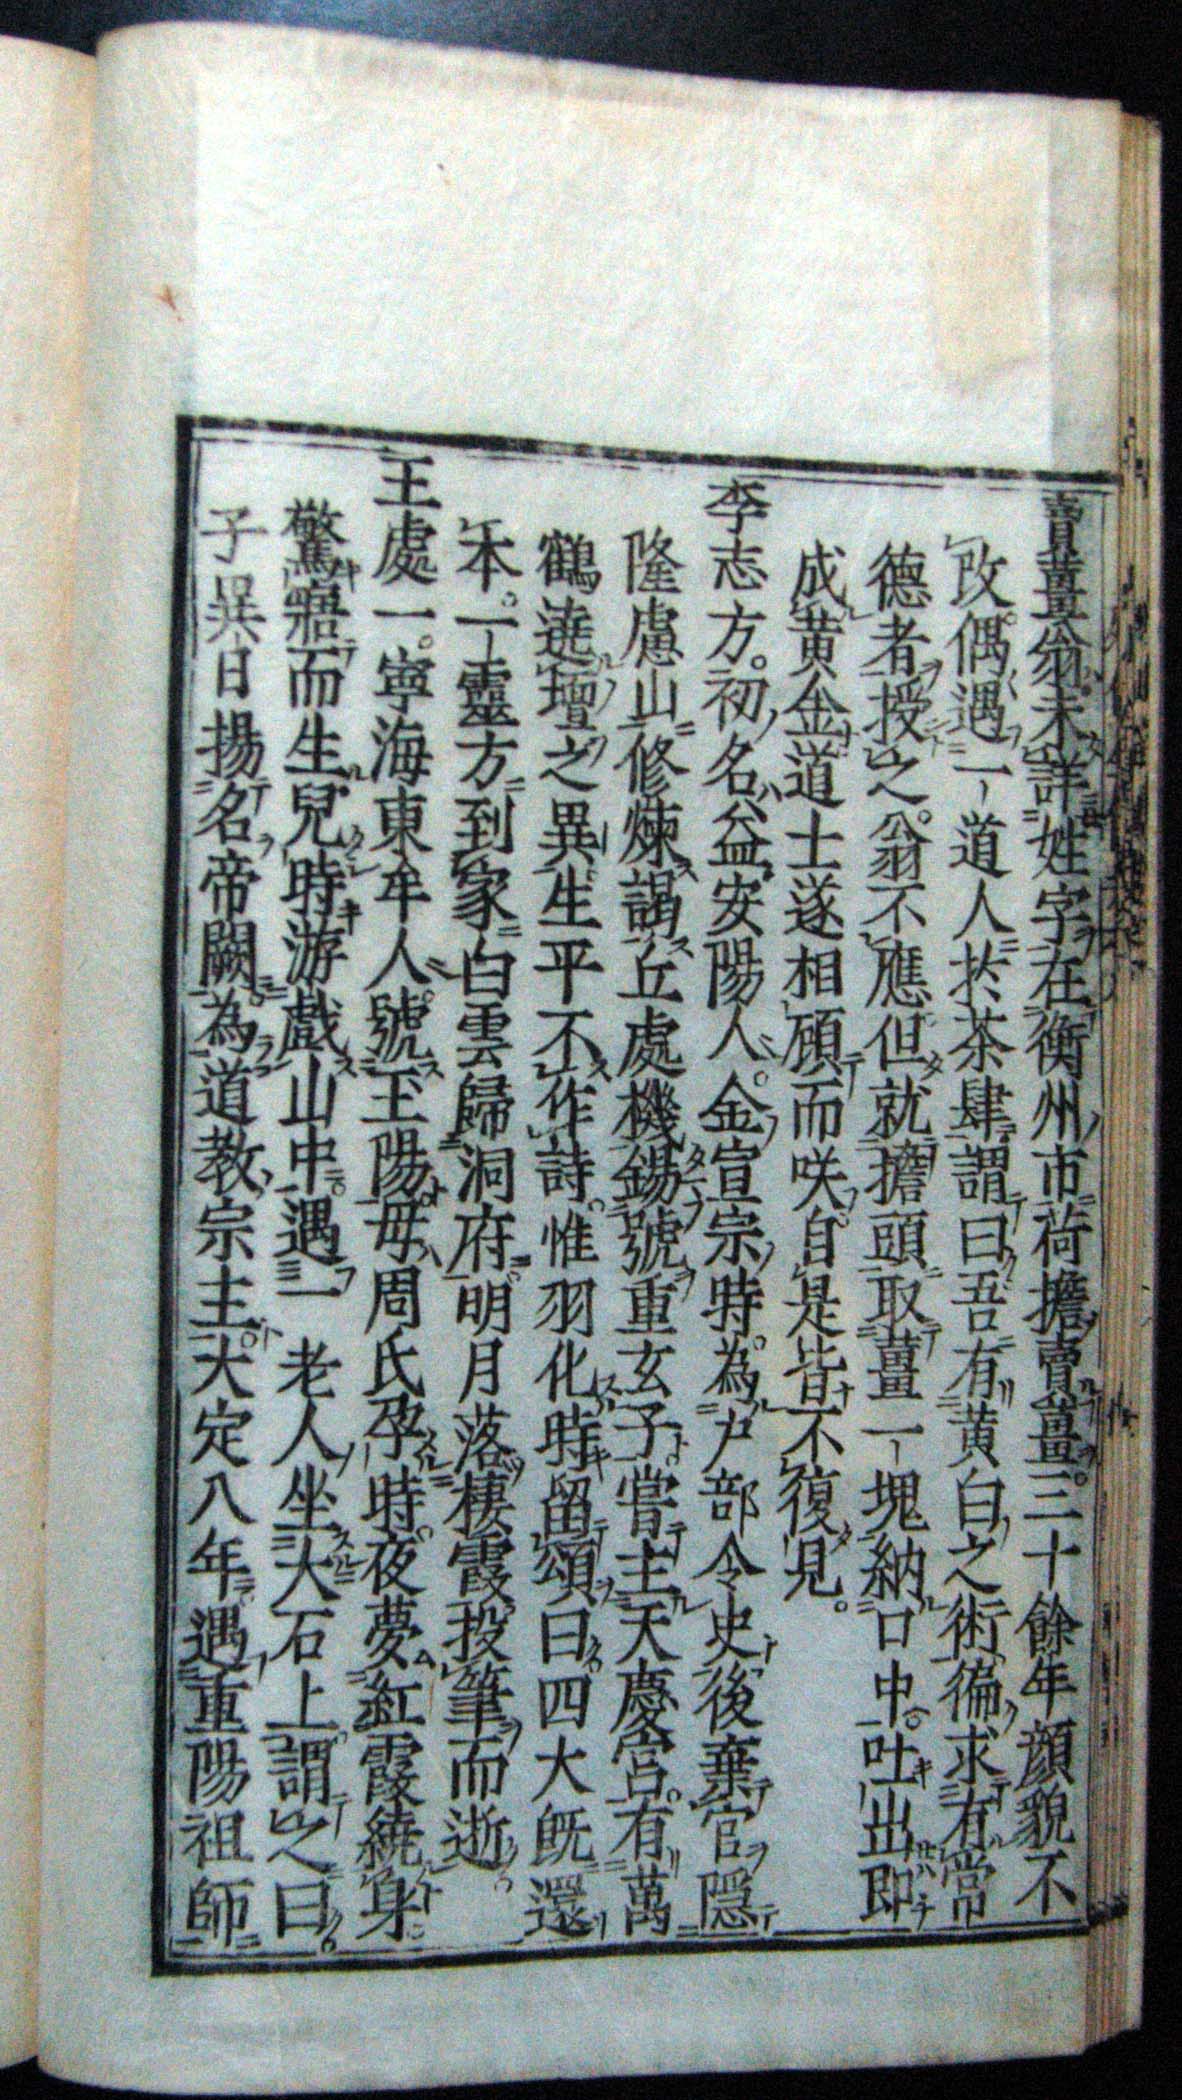 賣薑翁未詳姓字在衡州市荷擔賣薑三十餘年顔貌不
改偶遇一道人於茶肆謂曰吾有黄白之術徧求有常
德者授之翁不應但就擔頭取薑一塊納口中吐出即
成黄金道士遂相顧而咲自是皆不復見
李志方初名益安陽人金宣宗時為户部令史後棄官隠
隆慮山修煉謁丘處機錫號重玄子嘗主天慶宮有萬
鶴遶壇之異生平不作詩惟羽化時留頌曰四大旣還
本一靈方到家白雲歸洞府明月落棲霞投筆而逝
王處一寧海東牟人號玉陽母周氏孕時夜夢紅霞繞身
驚寤而生兒時游戯山中遇一老人坐大石上謂之曰
子異日揚名帝闕為道教宗主大定八年遇重陽祖師